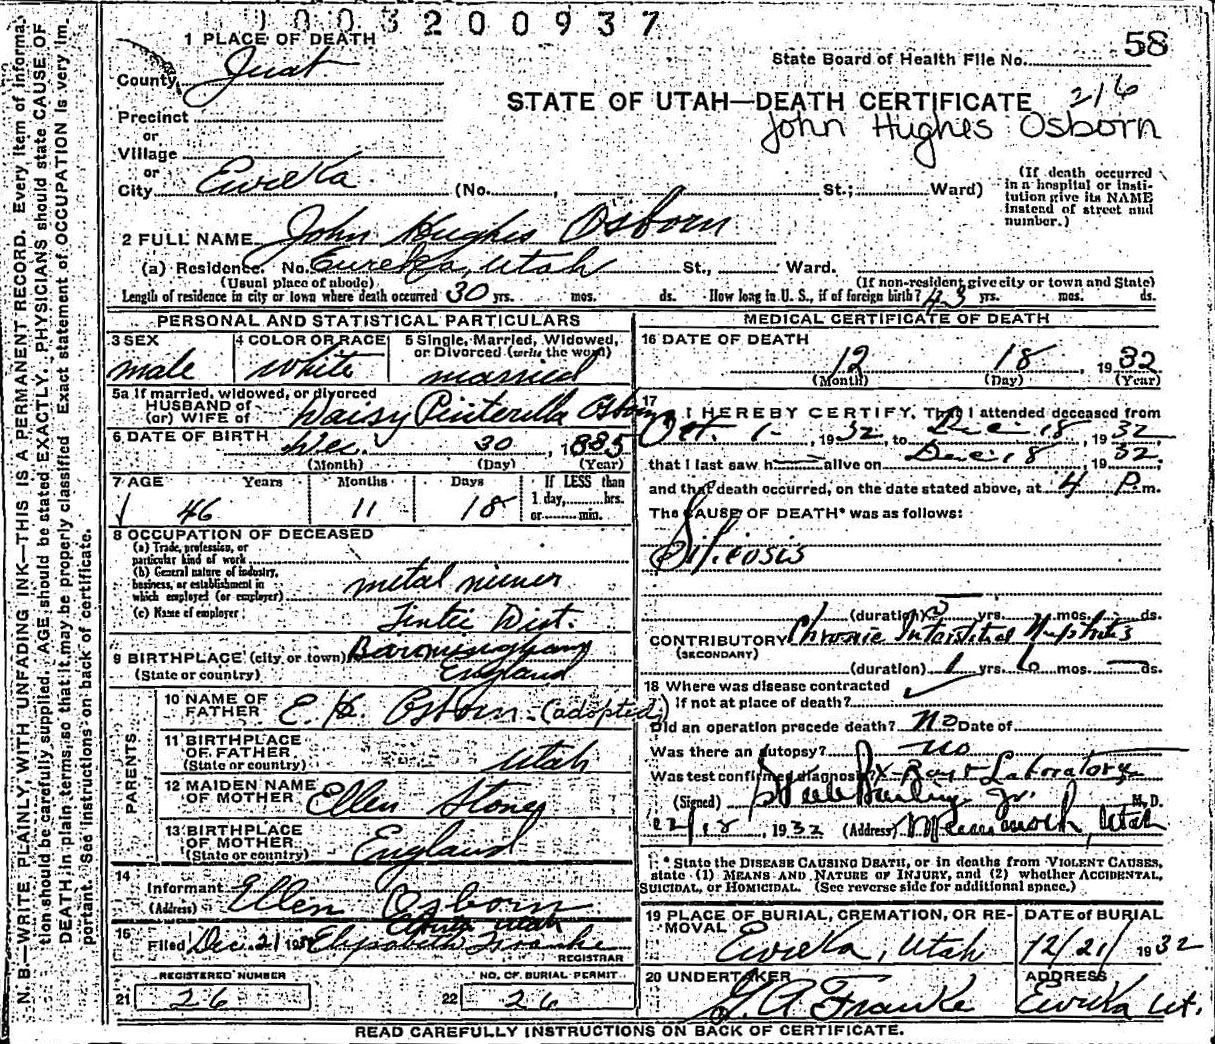 1003200937
1 PLACE OF DEATH
58
State Board of Health File No.
County Juab
STATE OF UTAH—DEATH CERTIFICATE 216
John Hughes Osborn
Precinct
or
Village
or
City Eureka (No. , St.; Ward)
(If death occurred in a hospital or insti-
tution give its NAME
instead of street and
number.)
2 FULL NAME John Hughes Osborn
(a) Residence. No. Eureka, Utah St., Ward.
(Usual place of abode) (If non-resident give city or town and State)
Length of residence in city or town where death occurred 30 yrs. mos. ds. How long in U. S., if of foreign birth? 43 yrs. mos. ds.
PERSONAL AND STATISTICAL PARTICULARS
3 SEX 4 COLOR OR RACE 5 Single, Married, Widowed,
or Divorced (write the word)
male white married
5a If married, widowed, or divorced
HUSBAND of
(or) WIFE of Daisy Osborn
6 DATE OF BIRTH Dec. 30, 1885
(Month) (Day) (Year)
7 AGE Years Months Days If LESS than
1 day, hrs.
or min.
46 11 18
8 OCCUPATION OF DECEASED
(a) Trade, profession, or
particular kind of work
(b) General nature of industry,
business, or establishment in
which employed (or employer) metal miner
(c) Name of employer Tintic Dist.
9 BIRTHPLACE (city or town)
(State or country) England
PARENTS
10 NAME OF
FATHER E. H. Osborn - (adopted)
11 BIRTHPLACE
OF FATHER
(State or country) Utah
12 MAIDEN NAME
OF MOTHER Ellen Stoney
13 BIRTHPLACE
OF MOTHER
(State or country) England
14
Informant Ellen Osborn
(Address) Utah
15
Filed Dec. 21 193 Franke
REGISTRAR
REGISTERED NUMBER NO. OF BURIAL PERMIT
21 26 22 26
MEDICAL CERTIFICATE OF DEATH
16 DATE OF DEATH
12 18, 1932
(Month) (Day) (Year)
17
I HEREBY CERTIFY, That I attended deceased from
Oct. 1 - , 1932, to Dec. 18, 1932
that I last saw h alive on Dec. 18, 1932.
and that death occurred, on the date stated above, at 4 P.m.
The CAUSE OF DEATH* was as follows:
Silicosis
(duration) 3 yrs. mos. ds.
CONTRIBUTORY Chronic Interstitial Nephritis
(SECONDARY)
(duration) 1 yrs. 6 mos. — ds.
18 Where was disease contracted
If not at place of death?
Did an operation precede death? No Date of
Was there an autopsy? no
Was test confirmed diagnosis? X-Ray & Laboratory
(Signed) Steele Bailey Jr. M. D.
12/18, 1932 (Address) Mammoth, Utah
* State the DISEASE CAUSING DEATH, or in deaths from VIOLENT CAUSES,
state (1) MEANS AND NATURE OF INJURY, and (2) whether ACCIDENTAL,
SUICIDAL, or HOMICIDAL. (See reverse side for additional space.)
19 PLACE OF BURIAL, CREMATION, OR RE-
MOVAL DATE OF BURIAL
Eureka, Utah 12/21/ 1932
20 UNDERTAKER ADDRESS
G. A. Franke Eureka Ut.
READ CAREFULLY INSTRUCTIONS ON BACK OF CERTIFICATE.
N. B.—WRITE PLAINLY, WITH UNFADING INK—THIS IS A PERMANENT RECORD. Every item of informa-
tion should be carefully supplied. AGE should be stated EXACTLY. PHYSICIANS should state CAUSE OF
DEATH in plain terms, so that it may be properly classified. Exact statement of OCCUPATION is very im-
portant. See instructions on back of certificate.